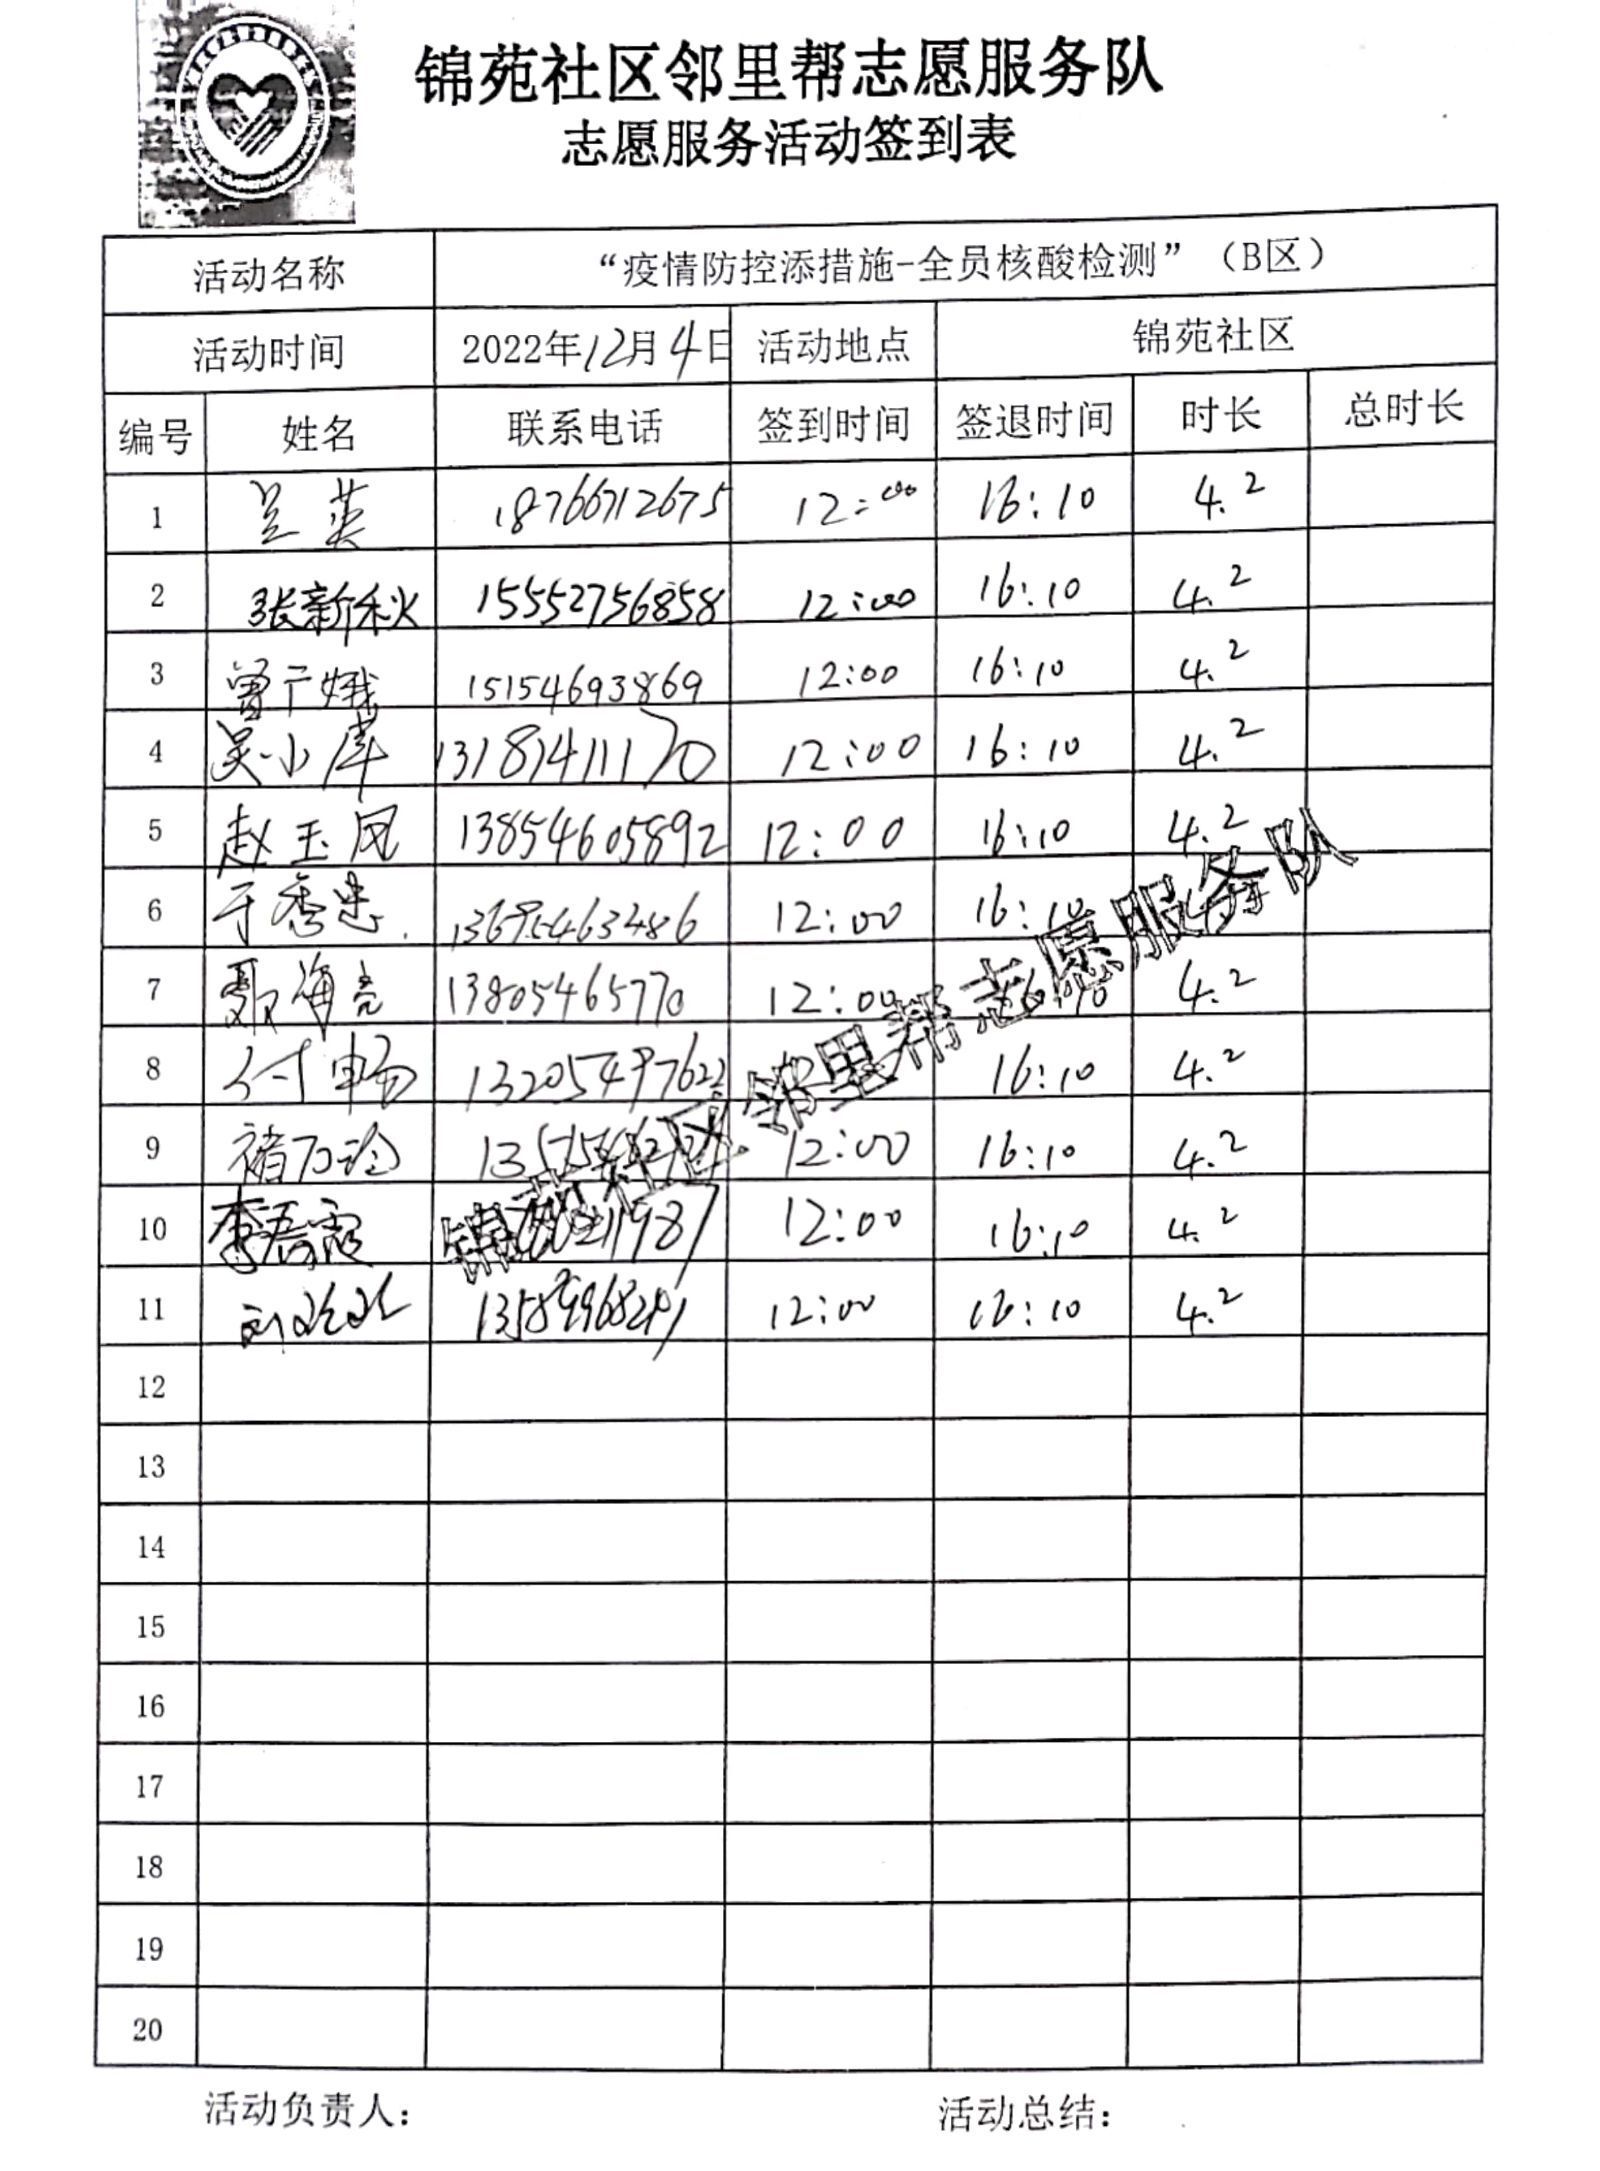 锦苑社区邻里帮志愿服务队
志愿服务活动签到表
活动名称 “疫情防控添措施-全员核酸检测”（B区）
活动时间 2022年12月4日 活动地点 锦苑社区
编号 姓名 联系电话 签到时间 签退时间 时长 总时长
1 英 18766712675 12:00 16:10 4.2
2 张新秋 15552756858 12:00 16:10 4.2
3 曾广娥 15154693869 12:00 16:10 4.2
4 吴小库 13181411170 12:00 16:10 4.2
5 赵玉凤 13854605892 12:00 16:10 4.2
6 于秀忠 12:00 16:10
7 聂海亮 13805465770 12:00 16:10 4.2
8 付畅 16:10 4.2
9 褚 12:00 16:10 4.2
10 李春霞 12:00 16:10 4.2
11 刘 12:00 16:10 4.2
12
13
14
15
16
17
18
19
20
锦苑社区邻里帮志愿服务队
活动负责人： 活动总结：